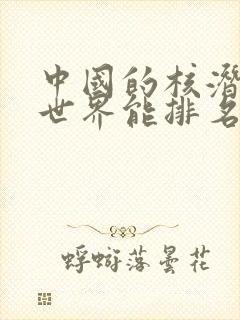 中國的核潛
世界能排名
蜉蝣落曇花